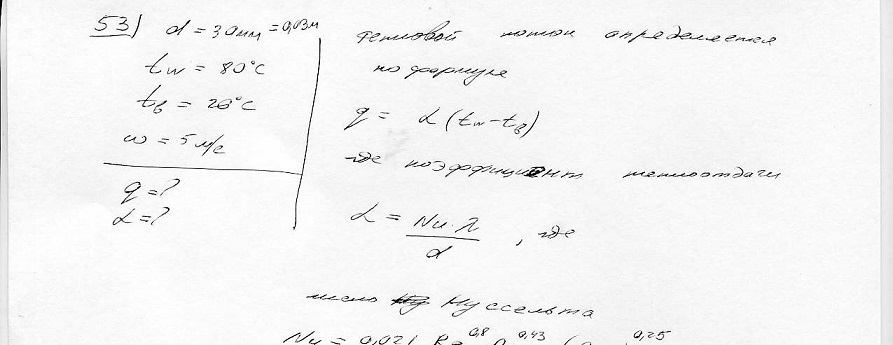 53) d = 30мм = 0,03м
t_w = 80°C
t_в = 20°C
w = 5 м/с
q = ?
α = ?
тепловой поток определяется
по формуле
q = α (t_w - t_в)
где коэффициент теплоотдачи
α = Nu · λ / d , где
число Нуссельта
Nu = 0,021 Re^0,8 Pr^0,43 ( ^0,25